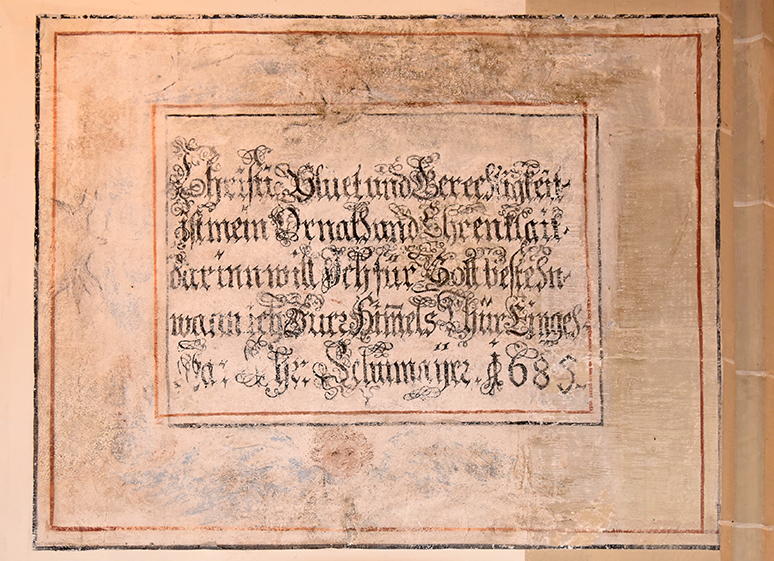 Christi Bluet und Gerechtigkeit
ist mein Ornat und Ehrenklaid
darinn will Ich für Gott bestehn
wann ich Zuer Him̅els Thür Eingeh
Chr. 1683